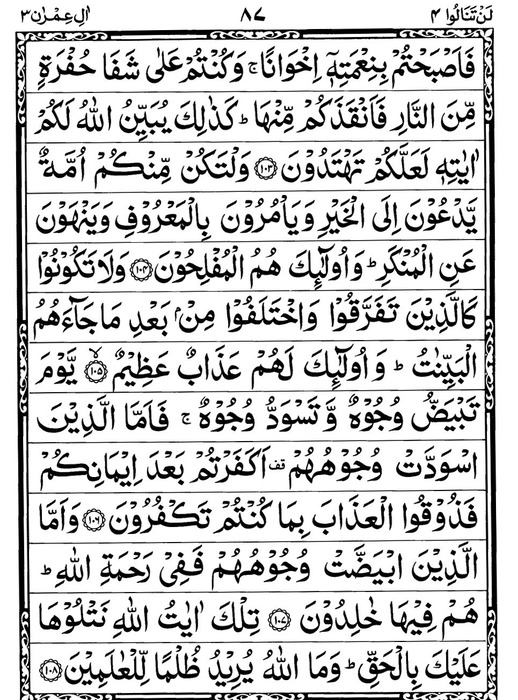 لَنْ تَنَالُوا ۴ ۸۷ اٰلِ عِمْرٰن ۳
فَاَصْبَحْتُمْ بِنِعْمَتِهٖۤ اِخْوَانًا ۚ وَكُنْتُمْ عَلٰى شَفَا حُفْرَةٍ
مِّنَ النَّارِ فَاَنْقَذَكُمْ مِّنْهَا ؕ كَذٰلِكَ يُبَيِّنُ اللّٰهُ لَكُمْ
اٰيٰتِهٖ لَعَلَّكُمْ تَهْتَدُوْنَ ﴿۱۰۳﴾ وَلْتَكُنْ مِّنْكُمْ اُمَّةٌ
يَّدْعُوْنَ اِلَى الْخَيْرِ وَيَاْمُرُوْنَ بِالْمَعْرُوْفِ وَيَنْهَوْنَ
عَنِ الْمُنْكَرِ ؕ وَاُولٰٓئِكَ هُمُ الْمُفْلِحُوْنَ ﴿۱۰۴﴾ وَلَا تَكُوْنُوْا
كَالَّذِيْنَ تَفَرَّقُوْا وَاخْتَلَفُوْا مِنْۢ بَعْدِ مَا جَآءَهُمُ
الْبَيِّنٰتُ ؕ وَاُولٰٓئِكَ لَهُمْ عَذَابٌ عَظِيْمٌ ﴿۱۰۵﴾ۙ يَّوْمَ
تَبْيَضُّ وُجُوْهٌ وَّتَسْوَدُّ وُجُوْهٌ ۚ فَاَمَّا الَّذِيْنَ
اسْوَدَّتْ وُجُوْهُهُمْ قف اَكَفَرْتُمْ بَعْدَ اِيْمَانِكُمْ
فَذُوْقُوا الْعَذَابَ بِمَا كُنْتُمْ تَكْفُرُوْنَ ﴿۱۰۶﴾ وَاَمَّا
الَّذِيْنَ ابْيَضَّتْ وُجُوْهُهُمْ فَفِيْ رَحْمَةِ اللّٰهِ ؕ
هُمْ فِيْهَا خٰلِدُوْنَ ﴿۱۰۷﴾ تِلْكَ اٰيٰتُ اللّٰهِ نَتْلُوْهَا
عَلَيْكَ بِالْحَقِّ ؕ وَمَا اللّٰهُ يُرِيْدُ ظُلْمًا لِّلْعٰلَمِيْنَ ﴿۱۰۸﴾